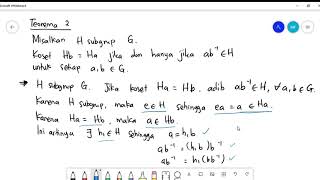 Teorema 2
Misalkan H subgrup G.
Koset Hb = Ha jika dan hanya jika ab⁻¹ ∈ H
untuk setiap a,b ∈ G.
→ H subgrup G. Jika koset Ha = Hb. adib ab⁻¹ ∈ H, ∀ a,b ∈ G.
Karena H subgrup, maka e ∈ H sehingga ea = a ∈ Ha.
Karena Ha = Hb, maka a ∈ Hb.
Ini artinya ∃ h₁ ∈ H sehingga a = h₁b ✓
ab⁻¹ = (h₁b)b⁻¹ ✓
ab⁻¹ = h₁(bb⁻¹) ✓